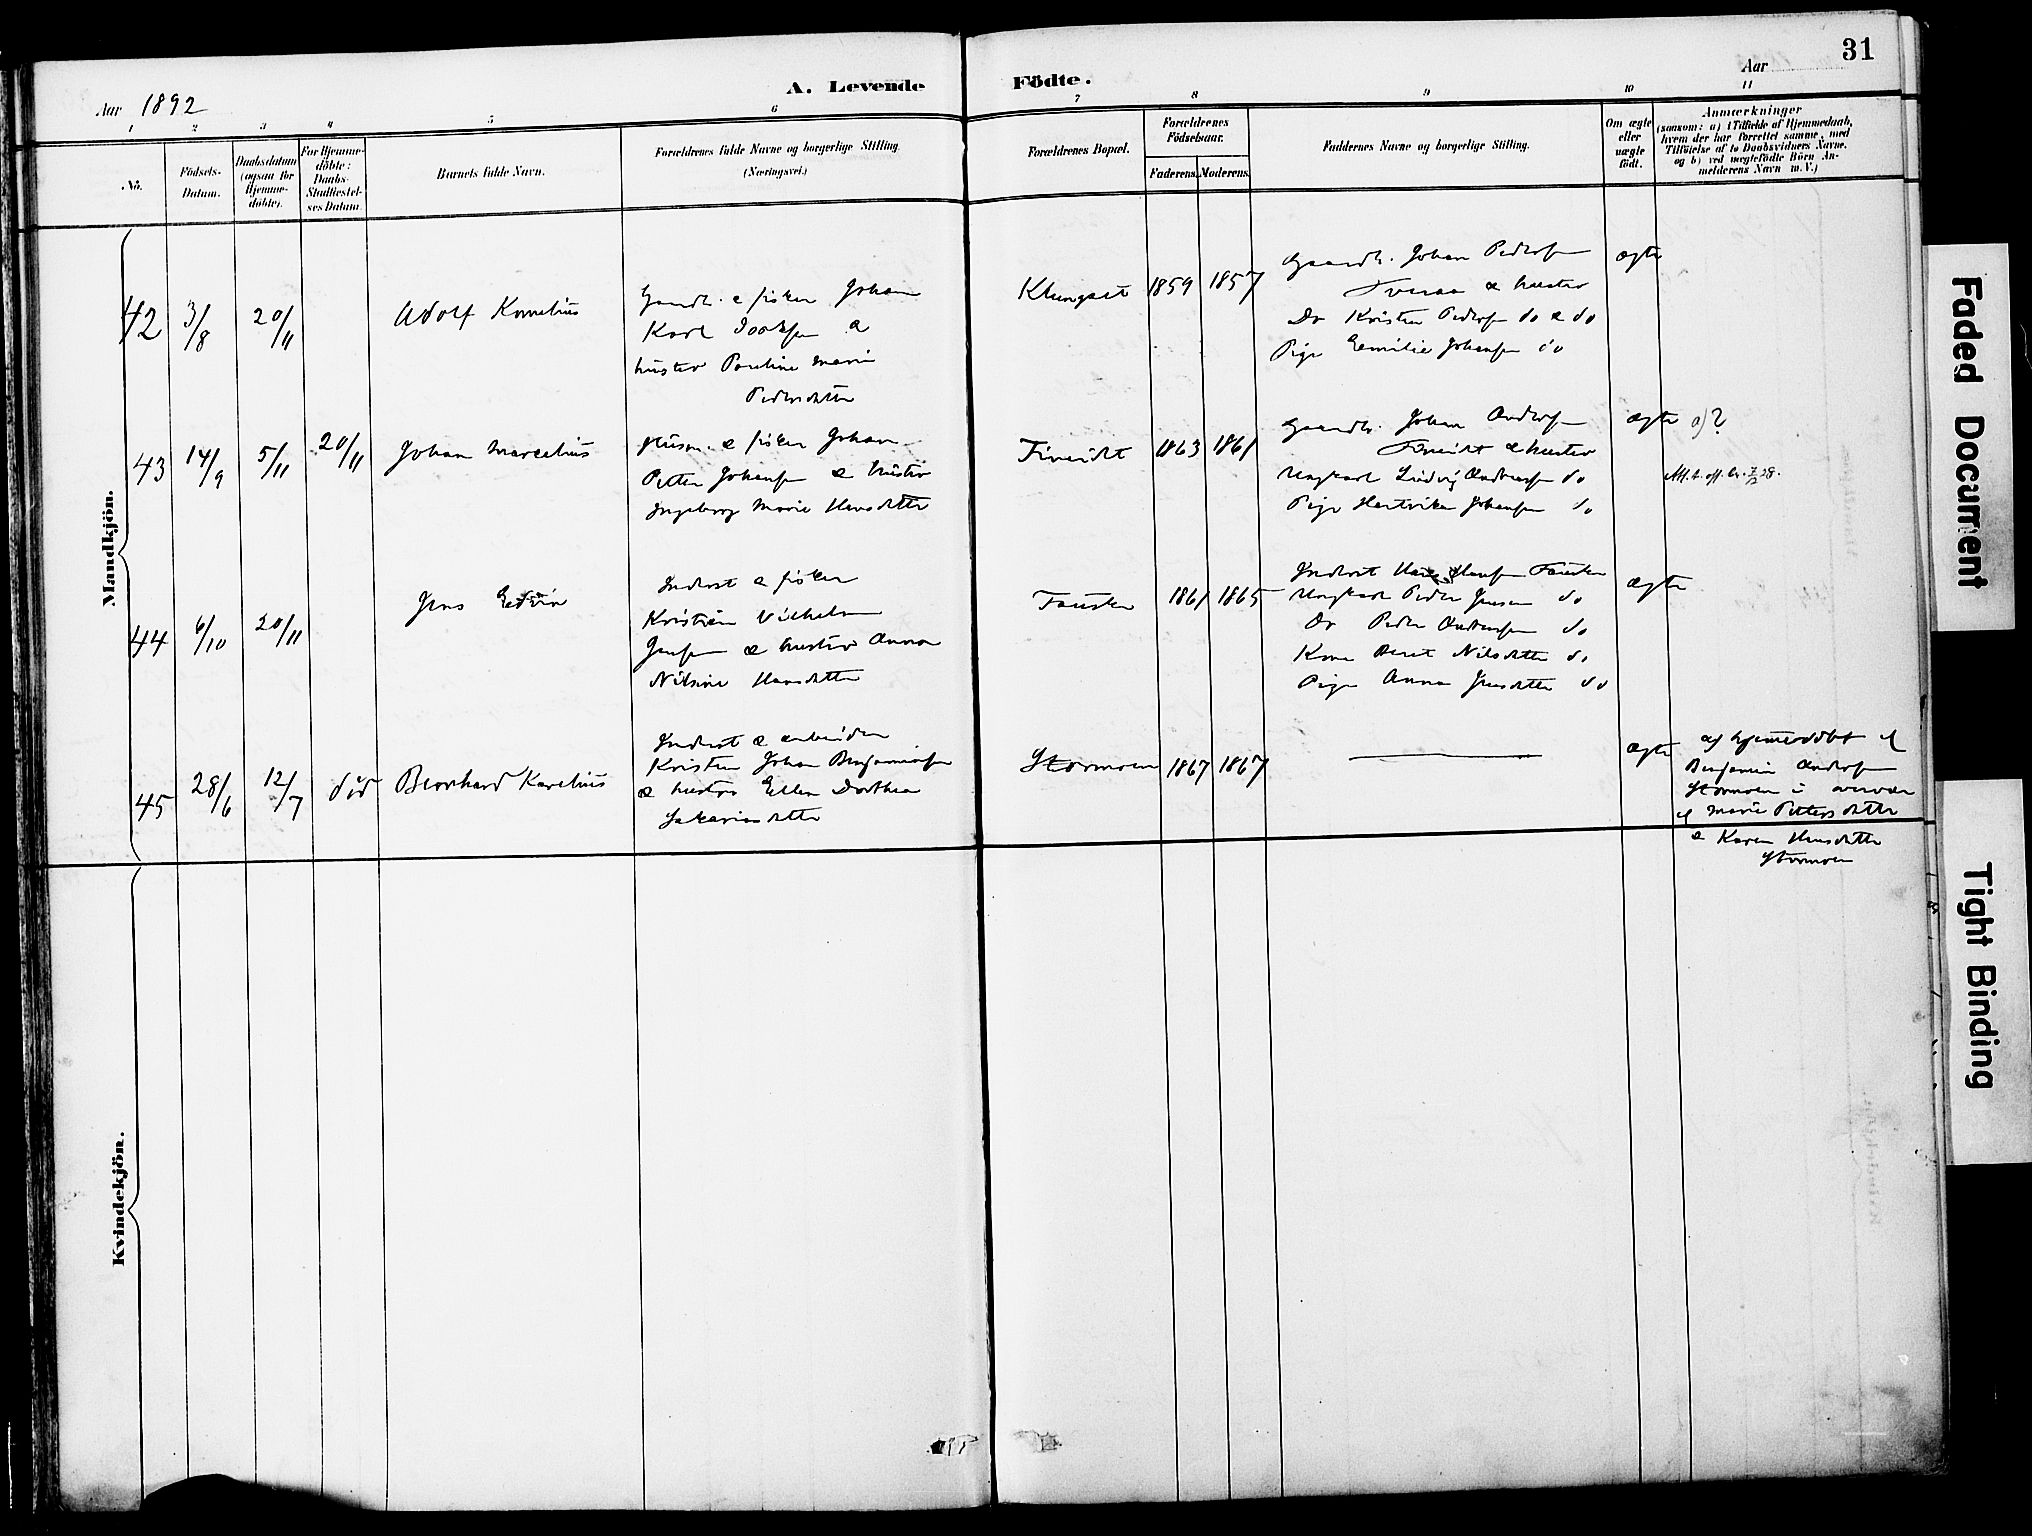 31
Aar 1892
A. Levende Födte.
Aar
1 2 3 4 5 6 7 8 9 10 11
No.
Födsels-
Datum.
Daabsdatum
(ogsaa for
Hjemme-
döbte).
For Hjemme-
döbte:
Daabs-
Stadfæstel-
ses Datum.
Barnets fulde Navn.
Forældrenes fulde Navne og borgerlige Stilling.
(Næringsvei.)
Forældrenes Bopæl.
Forældrenes
Födselsaar.
Faderens. Moderens.
Faddernes Navne og borgerlige Stilling.
Om ægte
eller
uægte
født.
Anmærkninger
(saasom: a) i Tilfælde af Hjemmedaab,
hvem der har forrettet samme, med
Tilföielse af to Daabsvidners Navne,
og b) ved uægtefödte Börn An-
melderens Navn m.V.)
Mandkjön.
42 3/8 20/11 Adolf Kornelius
Gaardb. & fisker Johan
Karl &
hustru Pauline Marie
Pedersdatter
1859 1857
Gaardb. Johan Pedersen
& hustru
Do Kristen Pedersen do & do
Pige Emilie Johansen do
ægte
43 14/9 5/11 20/11 Johan Marcelius
Husm. & fisker Johan
Petter Johansen & hustru
Ingeborg Marie Hansdatter
Fineidet 1863 1861
Gaardb. Johan Andersen
Fineidet & hustru
Ungkarl Ludvig Andersen do
Pige Hartvikka Johansen do
ægte a)?
Att. t. off. br. 7/2 28.
44 6/10 20/11 Jens Edvin
Inderst & fisker
Kristian Vilhelm
Jensen & hustru Anna
Nilsine Hansdatter
Fauske 1861 1865
Inderst Hans Hansen Fauske
Ungkarl Peder Jensen do
Do Peder Andersen do
Kone Beret Nilsdatter do
Pige Anna Jensdatter do
ægte
45 28/6 12/7 död Bernhard Karelius
Inderst & arbeider
Kristen Johan Benjaminsen
& hustru Ellen Dorthea
Sakariasdatter
Stormoen 1867 1867
ægte
a) hjemmedöbt af
Benjamin Andersen
Stormoen i overvær
af Marie Pettersdatter
& Karen Hansdatter
Stormoen
Kvindekjön.
Faded Document
Tight Binding